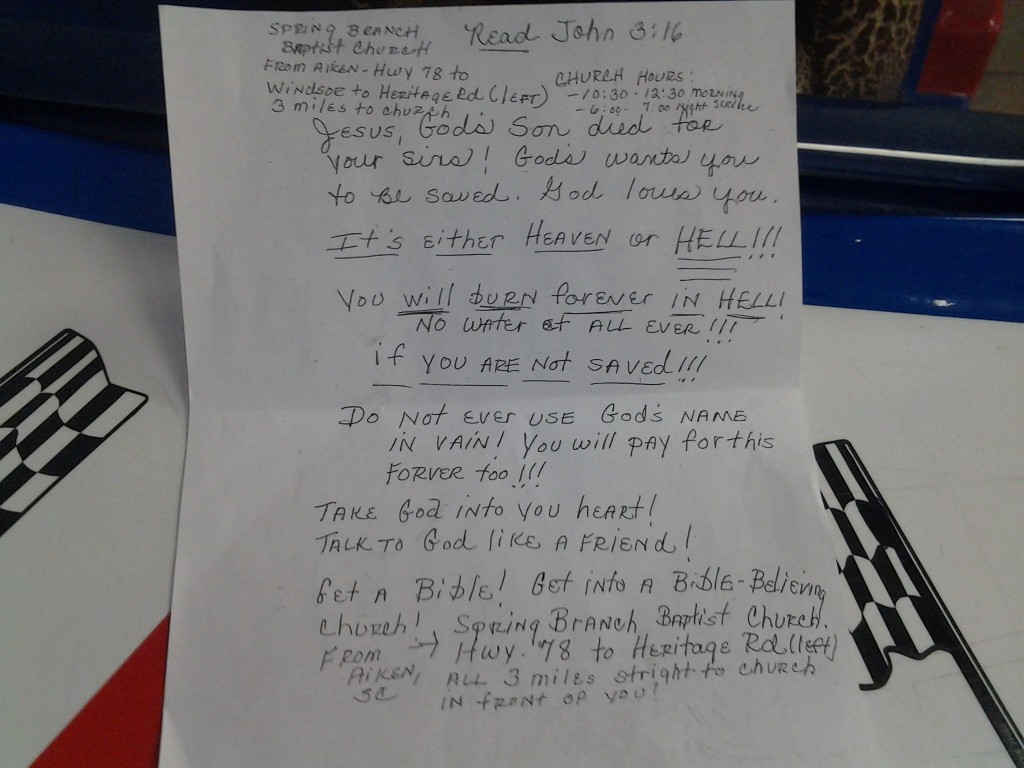 SPRING BRANCH
Baptist Church
From Aiken - Hwy 78 to
Windsor to Heritage Rd (left)
3 miles to church
Read John 3:16
CHURCH HOURS:
- 10:30 - 12:30 morning
- 6:00 - 7:00 Night Service
Jesus, God's Son died for
your sins! God's wants you
to be saved. God loves you.
It's either HEAVEN or HELL!!!
You will BURN forever IN HELL!
No water at ALL EVER!!!
if YOU ARE Not SAVED!!!
Do Not Ever USE God's NAME
IN VAIN! You will pay for this
FORVER too!!!
TAKE God into you heart!
TALK TO God like A FRIEND!
Get A Bible! Get into A Bible-Believing
Church! Spring Branch Baptist Church.
From → Hwy. 78 to Heritage Rd (left)
Aiken, ALL 3 miles stright to church
SC IN front of you!